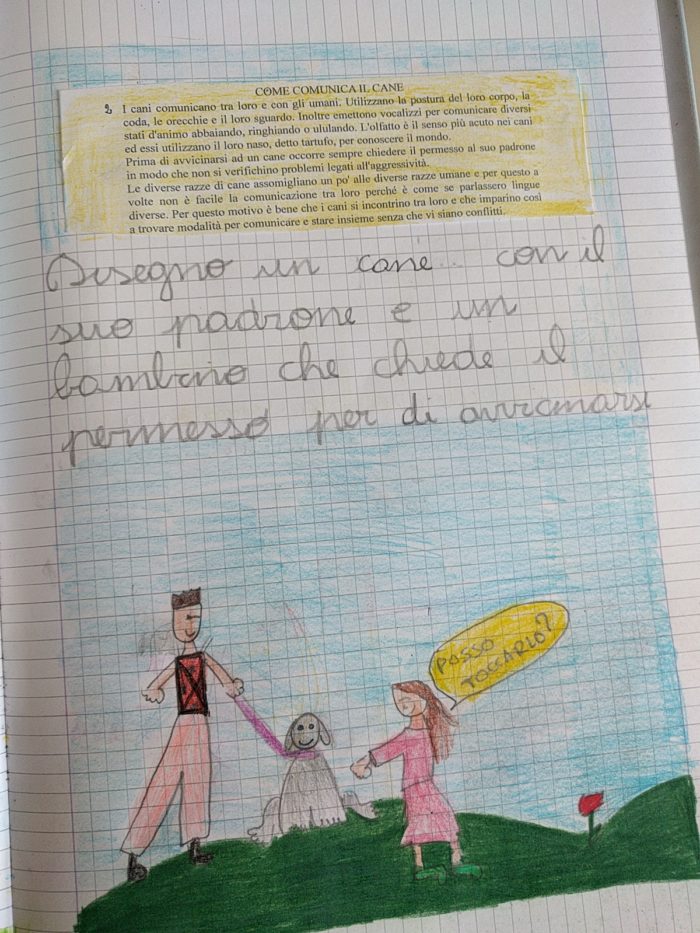 COME COMUNICA IL CANE
2. I cani comunicano tra loro e con gli umani. Utilizzano la postura del loro corpo, la
coda, le orecchie e il loro sguardo. Inoltre emettono vocalizzi per comunicare diversi
stati d'animo abbaiando, ringhiando o ululando. L'olfatto è il senso più acuto nei cani
ed essi utilizzano il loro naso, detto tartufo, per conoscere il mondo.
Prima di avvicinarsi ad un cane occorre sempre chiedere il permesso al suo padrone
in modo che non si verifichino problemi legati all'aggressività.
Le diverse razze di cane assomigliano un po' alle diverse razze umane e per questo a
volte non è facile la comunicazione tra loro perché è come se parlassero lingue
diverse. Per questo motivo è bene che i cani si incontrino tra loro e che imparino così
a trovare modalità per comunicare e stare insieme senza che vi siano conflitti.
Disegno un cane con il
suo padrone e un
bambino che chiede il
permesso per di avvicinarsi
POSSO
TOCCARLO?